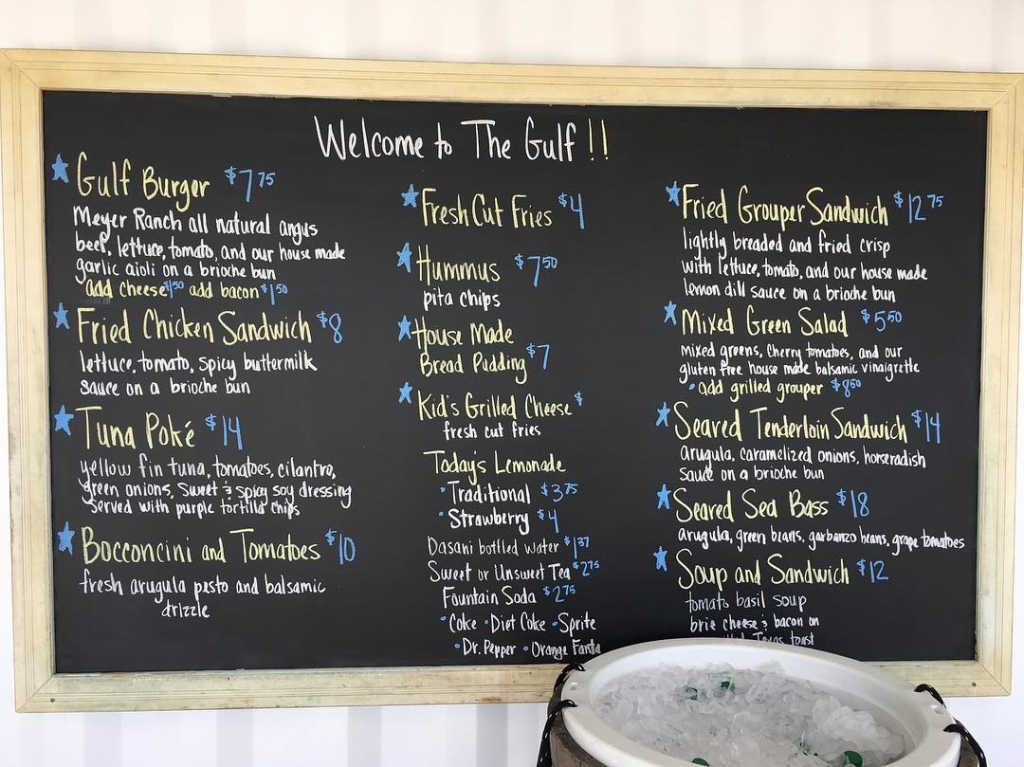 Welcome to The Gulf !!
Gulf Burger $7 75
Meyer Ranch all natural angus
beef, lettuce, tomato, and our house made
garlic aioli on a brioche bun
add cheese $1 50 add bacon $1 50
Fried Chicken Sandwich $8
lettuce, tomato, spicy buttermilk
sauce on a brioche bun
Tuna Poké $14
yellow fin tuna, tomatoes, cilantro,
green onions, sweet & spicy soy dressing
served with purple tortilla chips
Bocconcini and Tomatoes $10
fresh arugula pesto and balsamic
drizzle
Fresh Cut Fries $4
Hummus $7 50
pita chips
House Made
Bread Pudding $7
Kid's Grilled Cheese $
fresh cut fries
Today's Lemonade
• Traditional $3 75
• Strawberry $4
Dasani bottled water $1 37
Sweet or Unsweet Tea $2 75
Fountain Soda $2 75
• Coke • Diet Coke • Sprite
• Dr. Pepper • Orange Fanta
Fried Grouper Sandwich $12 75
lightly breaded and fried crisp
with lettuce, tomato, and our house made
lemon dill sauce on a brioche bun
Mixed Green Salad $5 50
mixed greens, cherry tomatoes, and our
gluten free house made balsamic vinaigrette
• add grilled grouper $8 50
Seared Tenderloin Sandwich $14
arugula, caramelized onions, horseradish
sauce on a brioche bun
Seared Sea Bass $18
arugula, green beans, garbanzo beans, grape tomatoes
Soup and Sandwich $12
tomato basil soup
brie cheese & bacon on
Texas toast